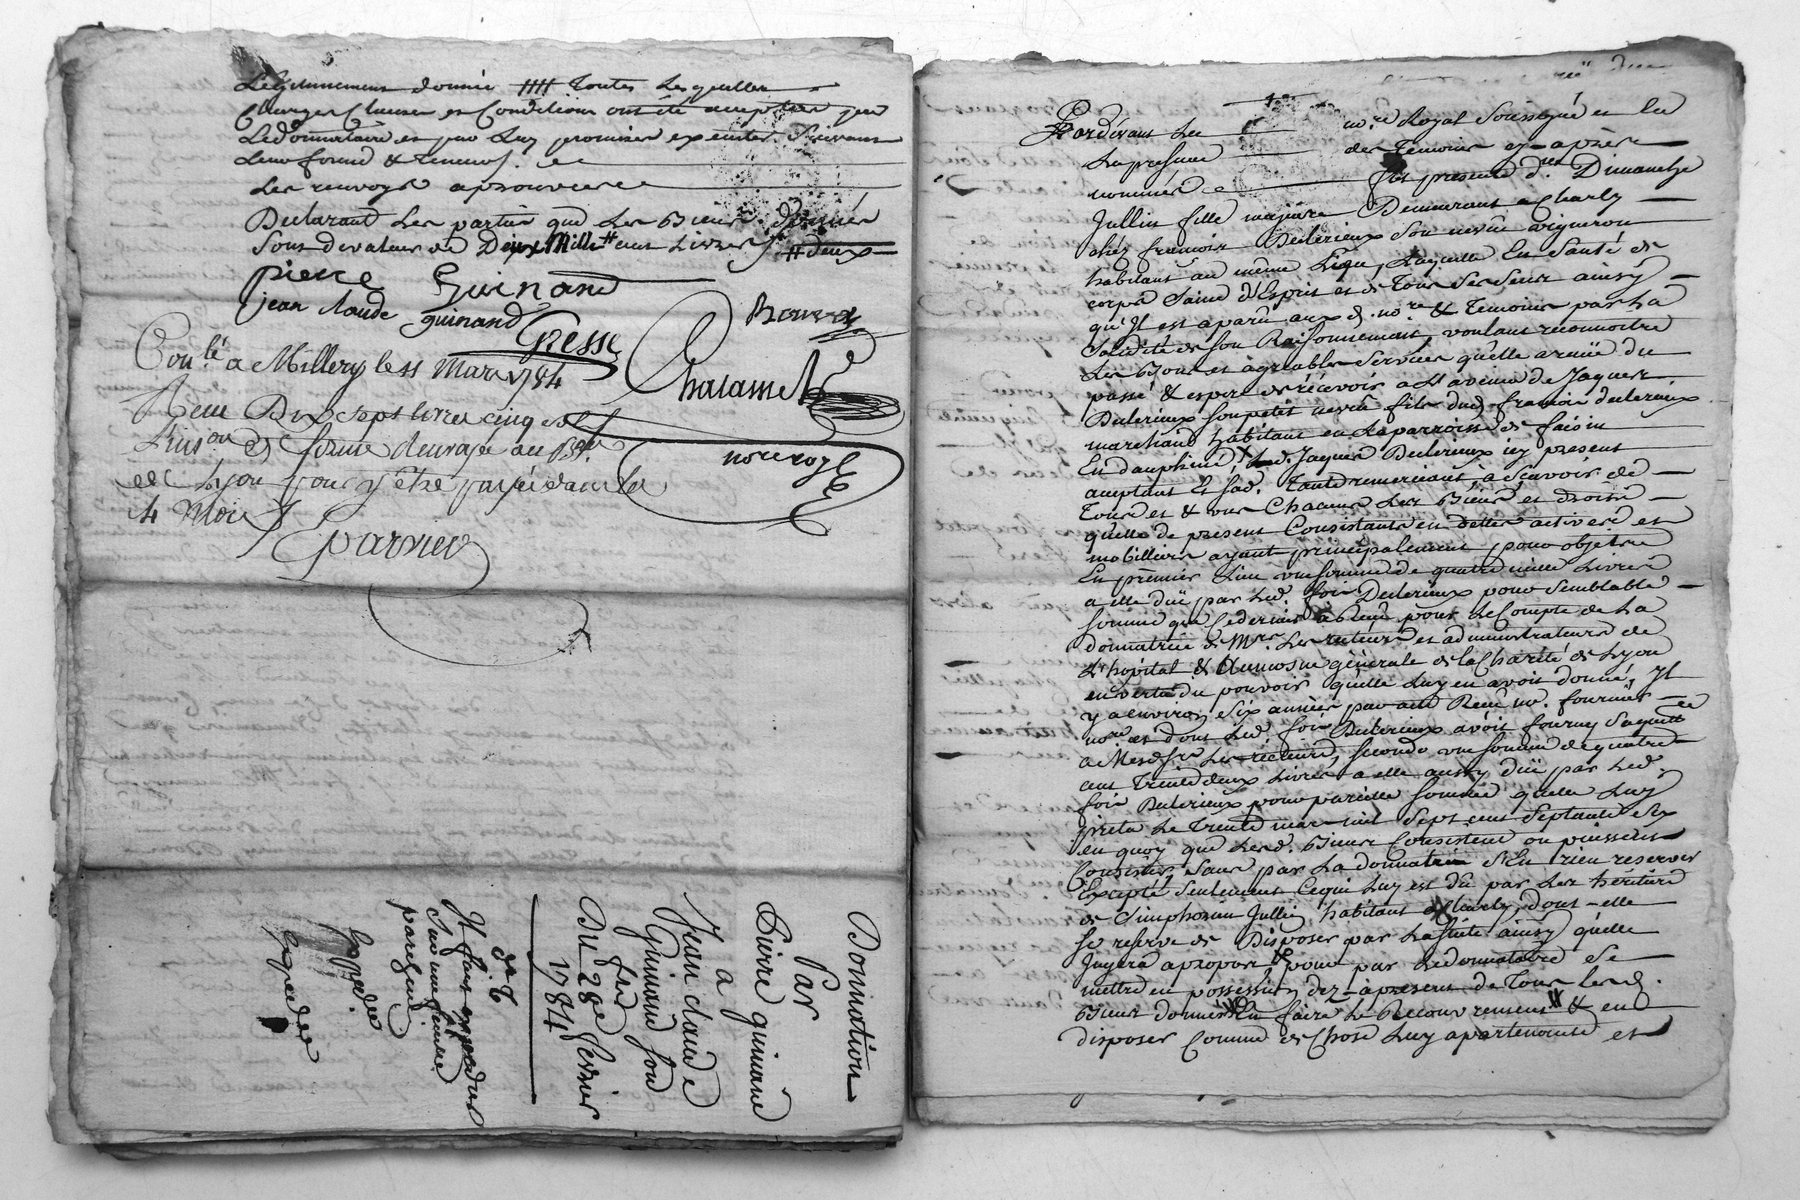 donnée Toutes Lesquelles
Charges Clauses et Conditions ont été acceptées par
Ledonnataire et par Luy promises executer Suivant
Leur forme & teneur
Les renvoys approuvees
Declarant Les parties que Les Biens donnés
Sont de valeur de Deux Mille cent Livres deux
pierre Guinand
jean Claude guinand
Gresse
Chalamel
nore royl
Conlé a Millery le 11 Mars 1784
Reçu Dix sept livres cinq
forme Renvoyé au
de Lyon pour y être payé dans les
4 Mois
parnier
Donnation
Par
Pierre guinand
a
Jean claude
Guinand son
fils
Du 28e fevrier
1784
Il faut expedier
Sur une feuille
parchemin
Expedié
Expediée
Pardevant Les nore Royal Soussigné et en
La presence des Temoins cy-après
nommés fut presente de Dimanche
Jullin fille majeure Demeurant a Charly
chez francois Decerieux Son neveu vigneron
habitant au même Lieu, Laquelle En Santé de
corps Saine d'Esprit et de Tous Ses Sens ainsy
qu'Il est aparû aux d. nore & Temoins par La
Solidité de Son Raisonnement, voulant reconnoitre
Les Bons et agréables Services quelle a reçü du
passé & espere de récevoir a L'avenir de Jaques
Decerieux Son petit neveu fils dud. francois decerieux
marchand habitant en La parroisse de
En dauphiné, Led. Jaques Decerieux icy present
acceptant et Lad. Tante remerciant, a Scavoir de
Tous et un Chacuns Les Biens et droits
quelle de present Consistants en dettes actives et
mobilliers ayant principalement pour objet
En premier Lieu une Somme de quatre mille Livres
a elle düe par Led. fois Decerieux pour Semblable
Somme que Cedernier a Reçu pour Le Compte de La
donnatrice de Mrs. Les recteurs et administrateurs de
L'hôpital & Aumosne générale de la Charité de Lyon
en vertu du pouvoir quelle Luy en avoit donné, Il
y a environ Six années par acte Reçu me. fournier
nore et dont Led. fois Decerieux avoit fourny
a Mesdsrs Les recteurs, Secondo une Somme de quatre
cent Trente deux Livres a elle aussy düe par Led.
fois Decerieux pour pareille Somme quelle Luy
preta Le Trente mil Sept cent Septante Six
en quoy que Lesd. Biens Consistent ou puissent
Consister, Sans par La donnatrice S'En rien reserver
Excepté Seulement Cequi Luy est Dû par Les héritiers
de Simphorien Jullin habitant a Charly dont elle
Se reserve de Disposer par La Suite ainsy quelle
Jugera apropos pour par Ledonnataire Se
mettre en possession dez-àpresent de Tous Lesd.
Biens donnés En faire Le Recouvrement & en
disposer Comme de Chose Luy apartenante et